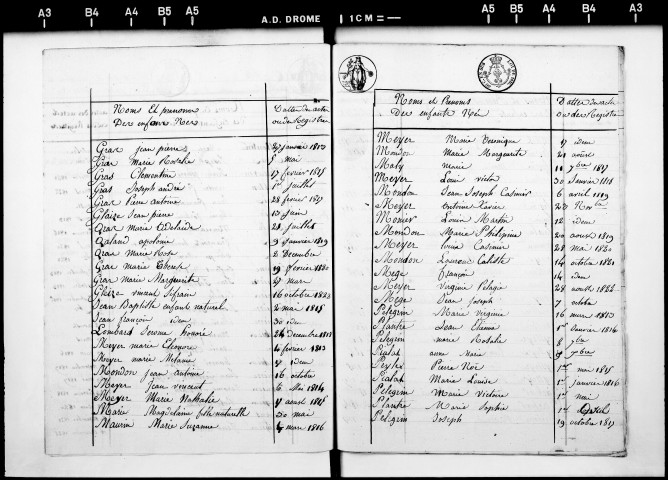 A3 B4 A4 B5 A5 A.D. DROME 1CM= A5 B5 A4 B4 A3
Noms Et prenoms
Des enfans Nés
Datte des actes
ou du Registre
Gras jean pierre 27 janvier 1813
Gras Marie Rosalie 5 mai
Gras Clementine 17 fevrier 1815
Gras Joseph andré 1er juillet
Gras pierre antoine 28 fevrier 1817
Glaize Jean pierre 13 juin
Gras marie Adelaide 28 juillet
Galand apolonie 9 janvier 1819
Gras marie Rose 2 Decembre
Gras marie Therese 19 fevrier 1820
Gras marie Marguerite 27 mars
Glaize vincent 16 octobre 1822
Jean Baptiste enfant naturel 2 mai 1815
Jean françois idem 30 idem
Lombard Jerome honoré 24 decembre 1815
Meyer marie Eleonore 4 fevrier 1813
Meyer marie Melanie 7 idem
Mondon jean antoine 16 octobre
Meyer Jean vincent 6 Mai 1814
Meyer Marie Nathalie 4 aout 1815
Marie Magdelaine fille naturelle 30 mai
Maurin Marie Suzanne 4 mars 1816
Noms et Prenoms
Des enfants Nés
Dattes des acte
ou des Registre
Meyer Marie Veronique 17 idem
Mondon Marie Marguerite 21 aout
Maly Marie 11 7bre 1817
Meyer Louis victor 30 Janvier 1818
Mondon Jean Joseph Casimir 6 avril 1819
Meyer Antoine Xavier 23 Novbre
Monier Louis Martin 12 idem
Mondon Marie Philipine 20 aout 1819
Meyer Louis Casimir 28 mai 1820
Mondon Laurent Caliste 14 octobre 1821
Mege François 14 idem
Meyer Virginie Pelagie 28 aout 1822
Mege Jean Joseph 7 octobre
Pelegrin Marie Virginie 16 mars 1813
Plantier Jean Etienne 1er Janvier 1814
Pelegrin marie Rosalie 8 7bre
Rabat anne Marie 7bre
Peylet Pierre Noé 1er mai 1815
Rabat Marie Louise 1er janvier 1816
Pelegrin Marie Victoire mai
Plantier Marie Sophie 1er
Pelegrin Joseph 19 octobre 1817